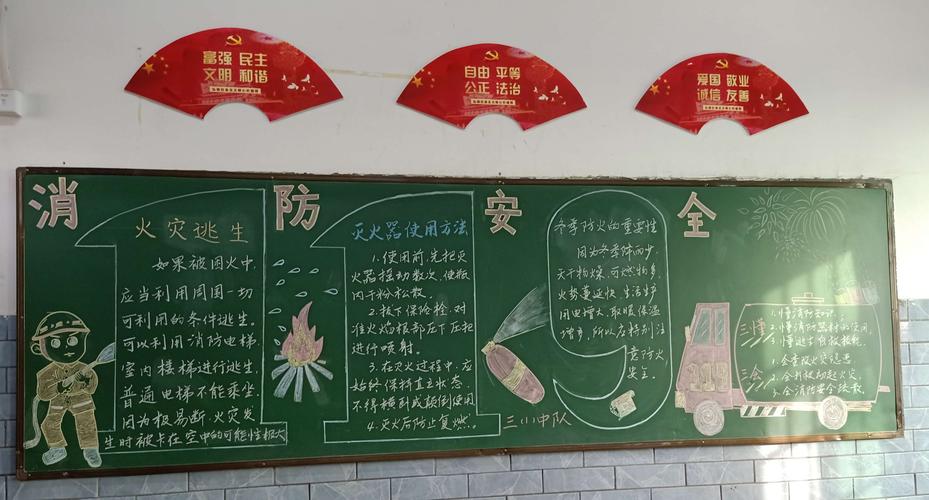 富强 民主
文明 和谐
自由 平等
公正 法治
爱国 敬业
诚信 友善
消防安全
火灾逃生
如果被困火中,
应当利用周围一切
可利用的条件逃生。
可以利用消防电梯
室内楼梯进行逃生,
普通电梯不能乘坐
因为极易断,火灾发
生时被卡在空中的可能性极大
灭火器使用方法
1.使用前,先把灭
火器摇动数次,使瓶
内干粉松散。
2.拔下保险栓,对
准火焰根部压下压把
进行喷射。
3.在灭火过程中,应
始终保持直立状态,
不得横卧或颠倒使用
4.灭火后防止复燃。
冬季防火的重要性
因为冬季降雨少,
天干物燥,可燃物多,
火势蔓延快,生活生产
用电增大,取暖保温
增多,所以应特别注
意防火
安全。
三(1)中队
119
三懂
1.懂消防知识;
2.懂消防器材的使用,
3.懂逃生自救技能,
三会
1.会查报火灾隐患,
2.会扑救初起火灾,
3.会消防安全